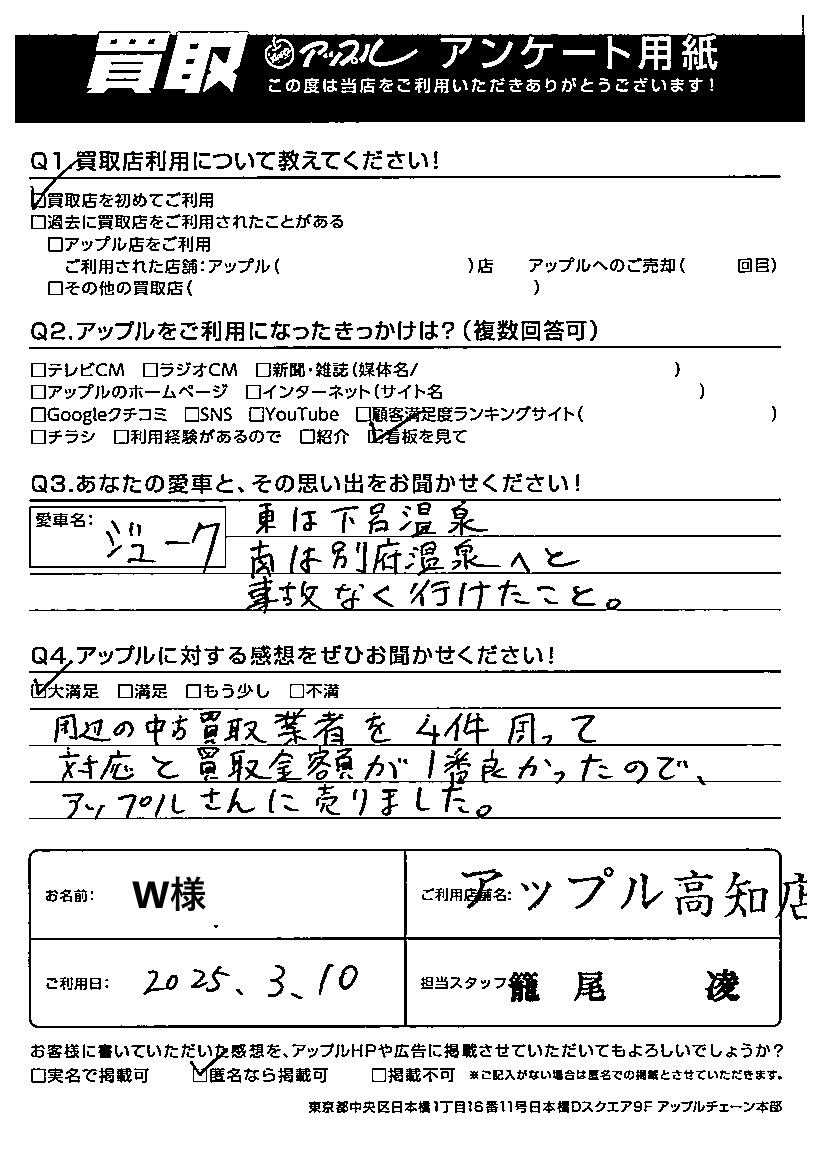 買取 アップル アンケート用紙
この度は当店をご利用いただきありがとうございます！
Q1.買取店利用について教えてください！
☑買取店を初めてご利用
□過去に買取店をご利用されたことがある
□アップル店をご利用
ご利用された店舗：アップル（ ）店 アップルへのご売却（ 回目）
□その他の買取店（ ）
Q2.アップルをご利用になったきっかけは？（複数回答可）
□テレビCM □ラジオCM □新聞・雑誌（媒体名/ ）
□アップルのホームページ □インターネット（サイト名 ）
□Googleクチコミ □SNS □YouTube □顧客満足度ランキングサイト（ ）
□チラシ □利用経験があるので □紹介 ☑看板を見て
Q3.あなたの愛車と、その思い出をお聞かせください！
愛車名： ジューク
東は下呂温泉
南は別府温泉へと
事故なく行けたこと。
Q4.アップルに対する感想をぜひお聞かせください！
☑大満足 □満足 □もう少し □不満
周辺の中古買取業者を4件周って
対応と買取金額が1番良かったので、
アップルさんに売りました。
お名前： W様
ご利用店舗名： アップル高知店
ご利用日： 2025、3、10
担当スタッフ 籠尾 凌
お客様に書いていただいた感想を、アップルHPや広告に掲載させていただいてもよろしいでしょうか？
□実名で掲載可 ☑匿名なら掲載可 □掲載不可 ※ご記入がない場合は匿名での掲載とさせていただきます。
東京都中央区日本橋1丁目16番11号日本橋Dスクエア9F アップルチェーン本部